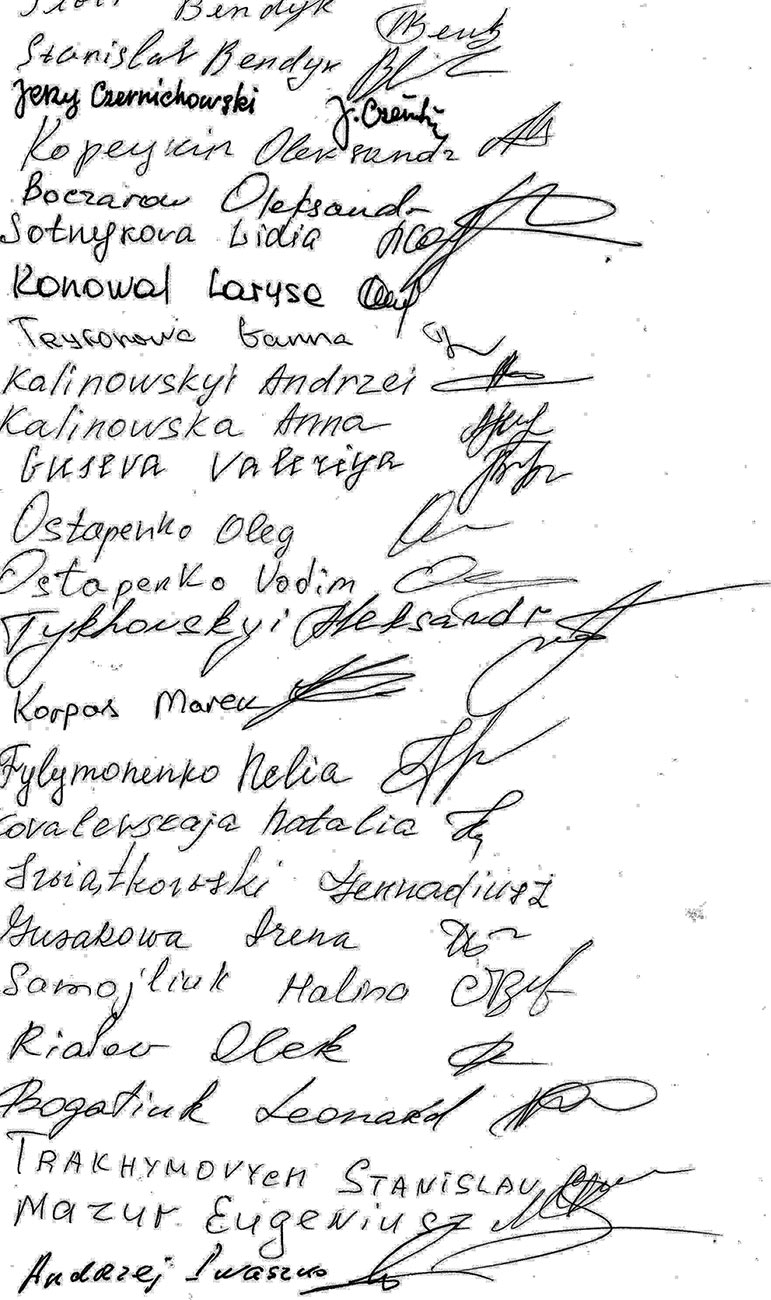 Piotr Bendyk
Stanisłat Bendyk
Jerzy Czernichowski J. Czerni
Kopeykin Oleksandr
Boczarow Oleksandr
Sotnykova Lidia
Konowal Laryse
Tryfonowa Ganna
Kalinowskyi Andrzei
Kalinowska Anna
Guseva Valeriya
Ostapenko Oleg
Ostapenko Vadim
Tykhovskyi Aleksandr
Korpas Marek
Fylymonenko Nelia
Kovalewskaja Natalia
Światkowski Gennadiusz
Gusakowa Irena
Samojliuk Halina
Riałow Olek
Bogatiuk Leonard
TRAKHYMOVYCH STANISLAV
Mazur Eugeniusz
Andrzej Iwaszko